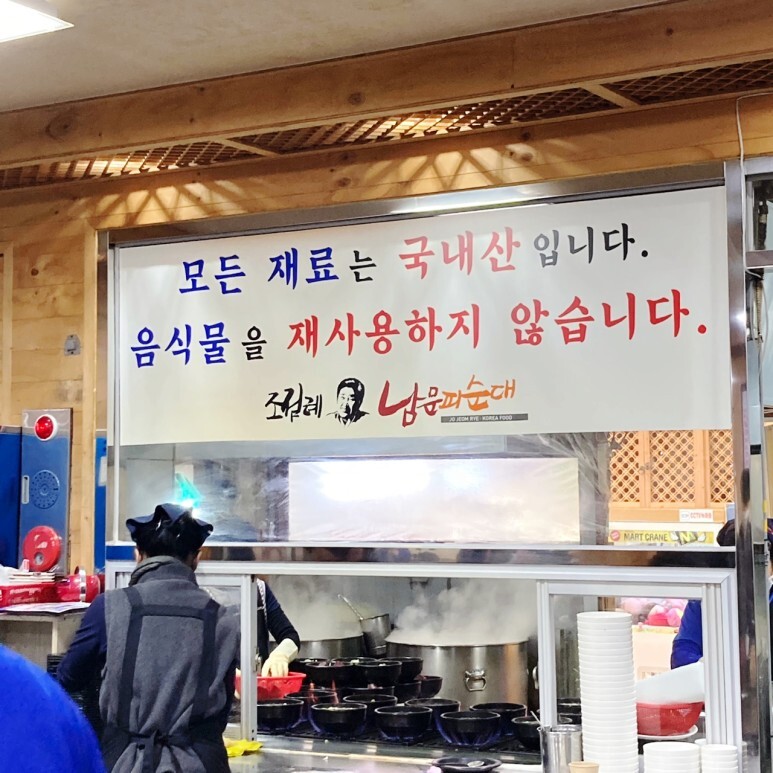 모든 재료는 국내산입니다.
음식물을 재사용하지 않습니다.
조점례 남문피순대
JO JEOM RYE · KOREA FOOD
MART CRANE